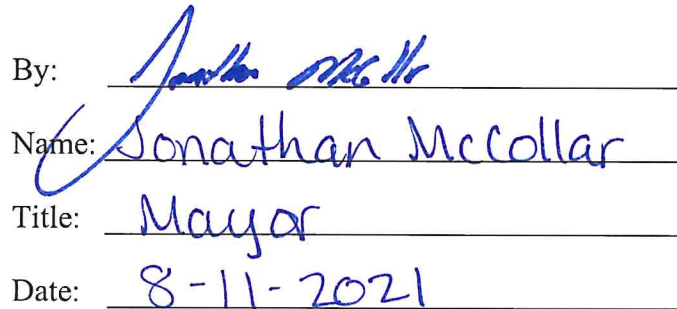 By: Jonathan McCollar
Name: Jonathan McCollar
Title: Mayor
Date: 8-11-2021